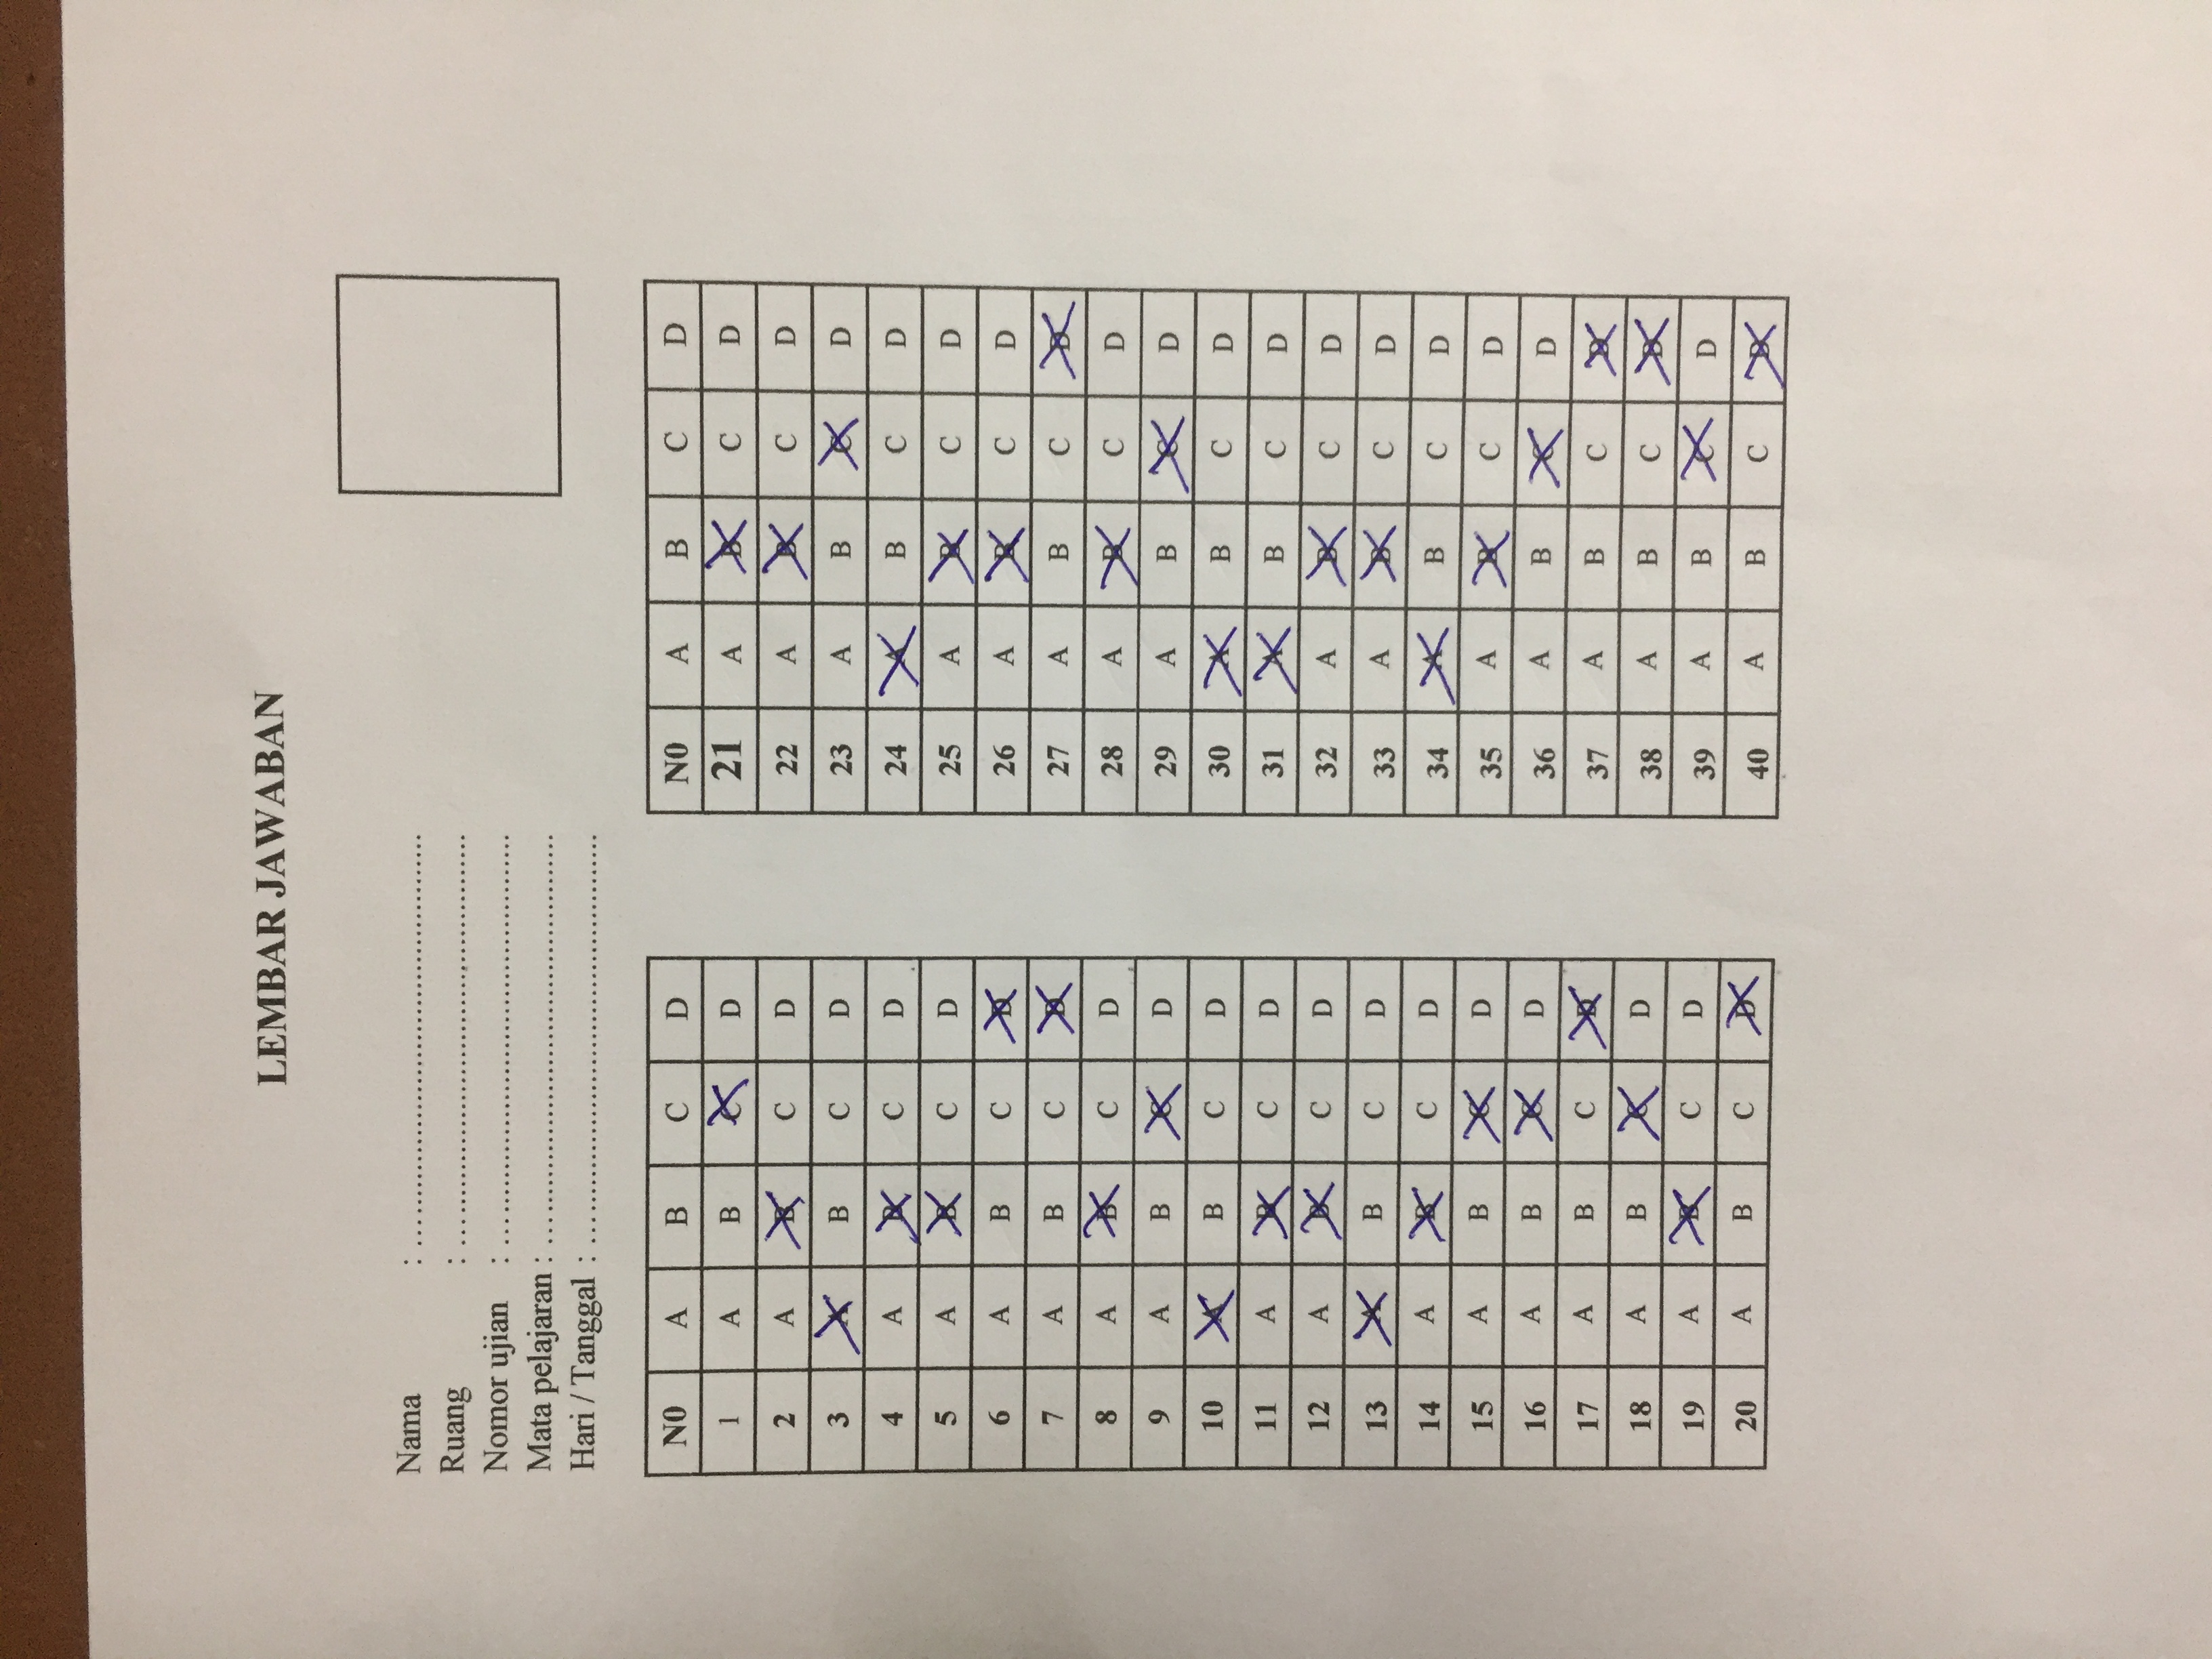 LEMBAR JAWABAN
Nama : ................................................
Ruang : ................................................
Nomor ujian : ................................................
Mata pelajaran : ................................................
Hari / Tanggal : ................................................
N0 A B C D
1 A B C D
2 A B C D
3 A B C D
4 A B C D
5 A B C D
6 A B C D
7 A B C D
8 A B C D
9 A B C D
10 A B C D
11 A B C D
12 A B C D
13 A B C D
14 A B C D
15 A B C D
16 A B C D
17 A B C D
18 A B C D
19 A B C D
20 A B C D
N0 A B C D
21 A B C D
22 A B C D
23 A B C D
24 A B C D
25 A B C D
26 A B C D
27 A B C D
28 A B C D
29 A B C D
30 A B C D
31 A B C D
32 A B C D
33 A B C D
34 A B C D
35 A B C D
36 A B C D
37 A B C D
38 A B C D
39 A B C D
40 A B C D